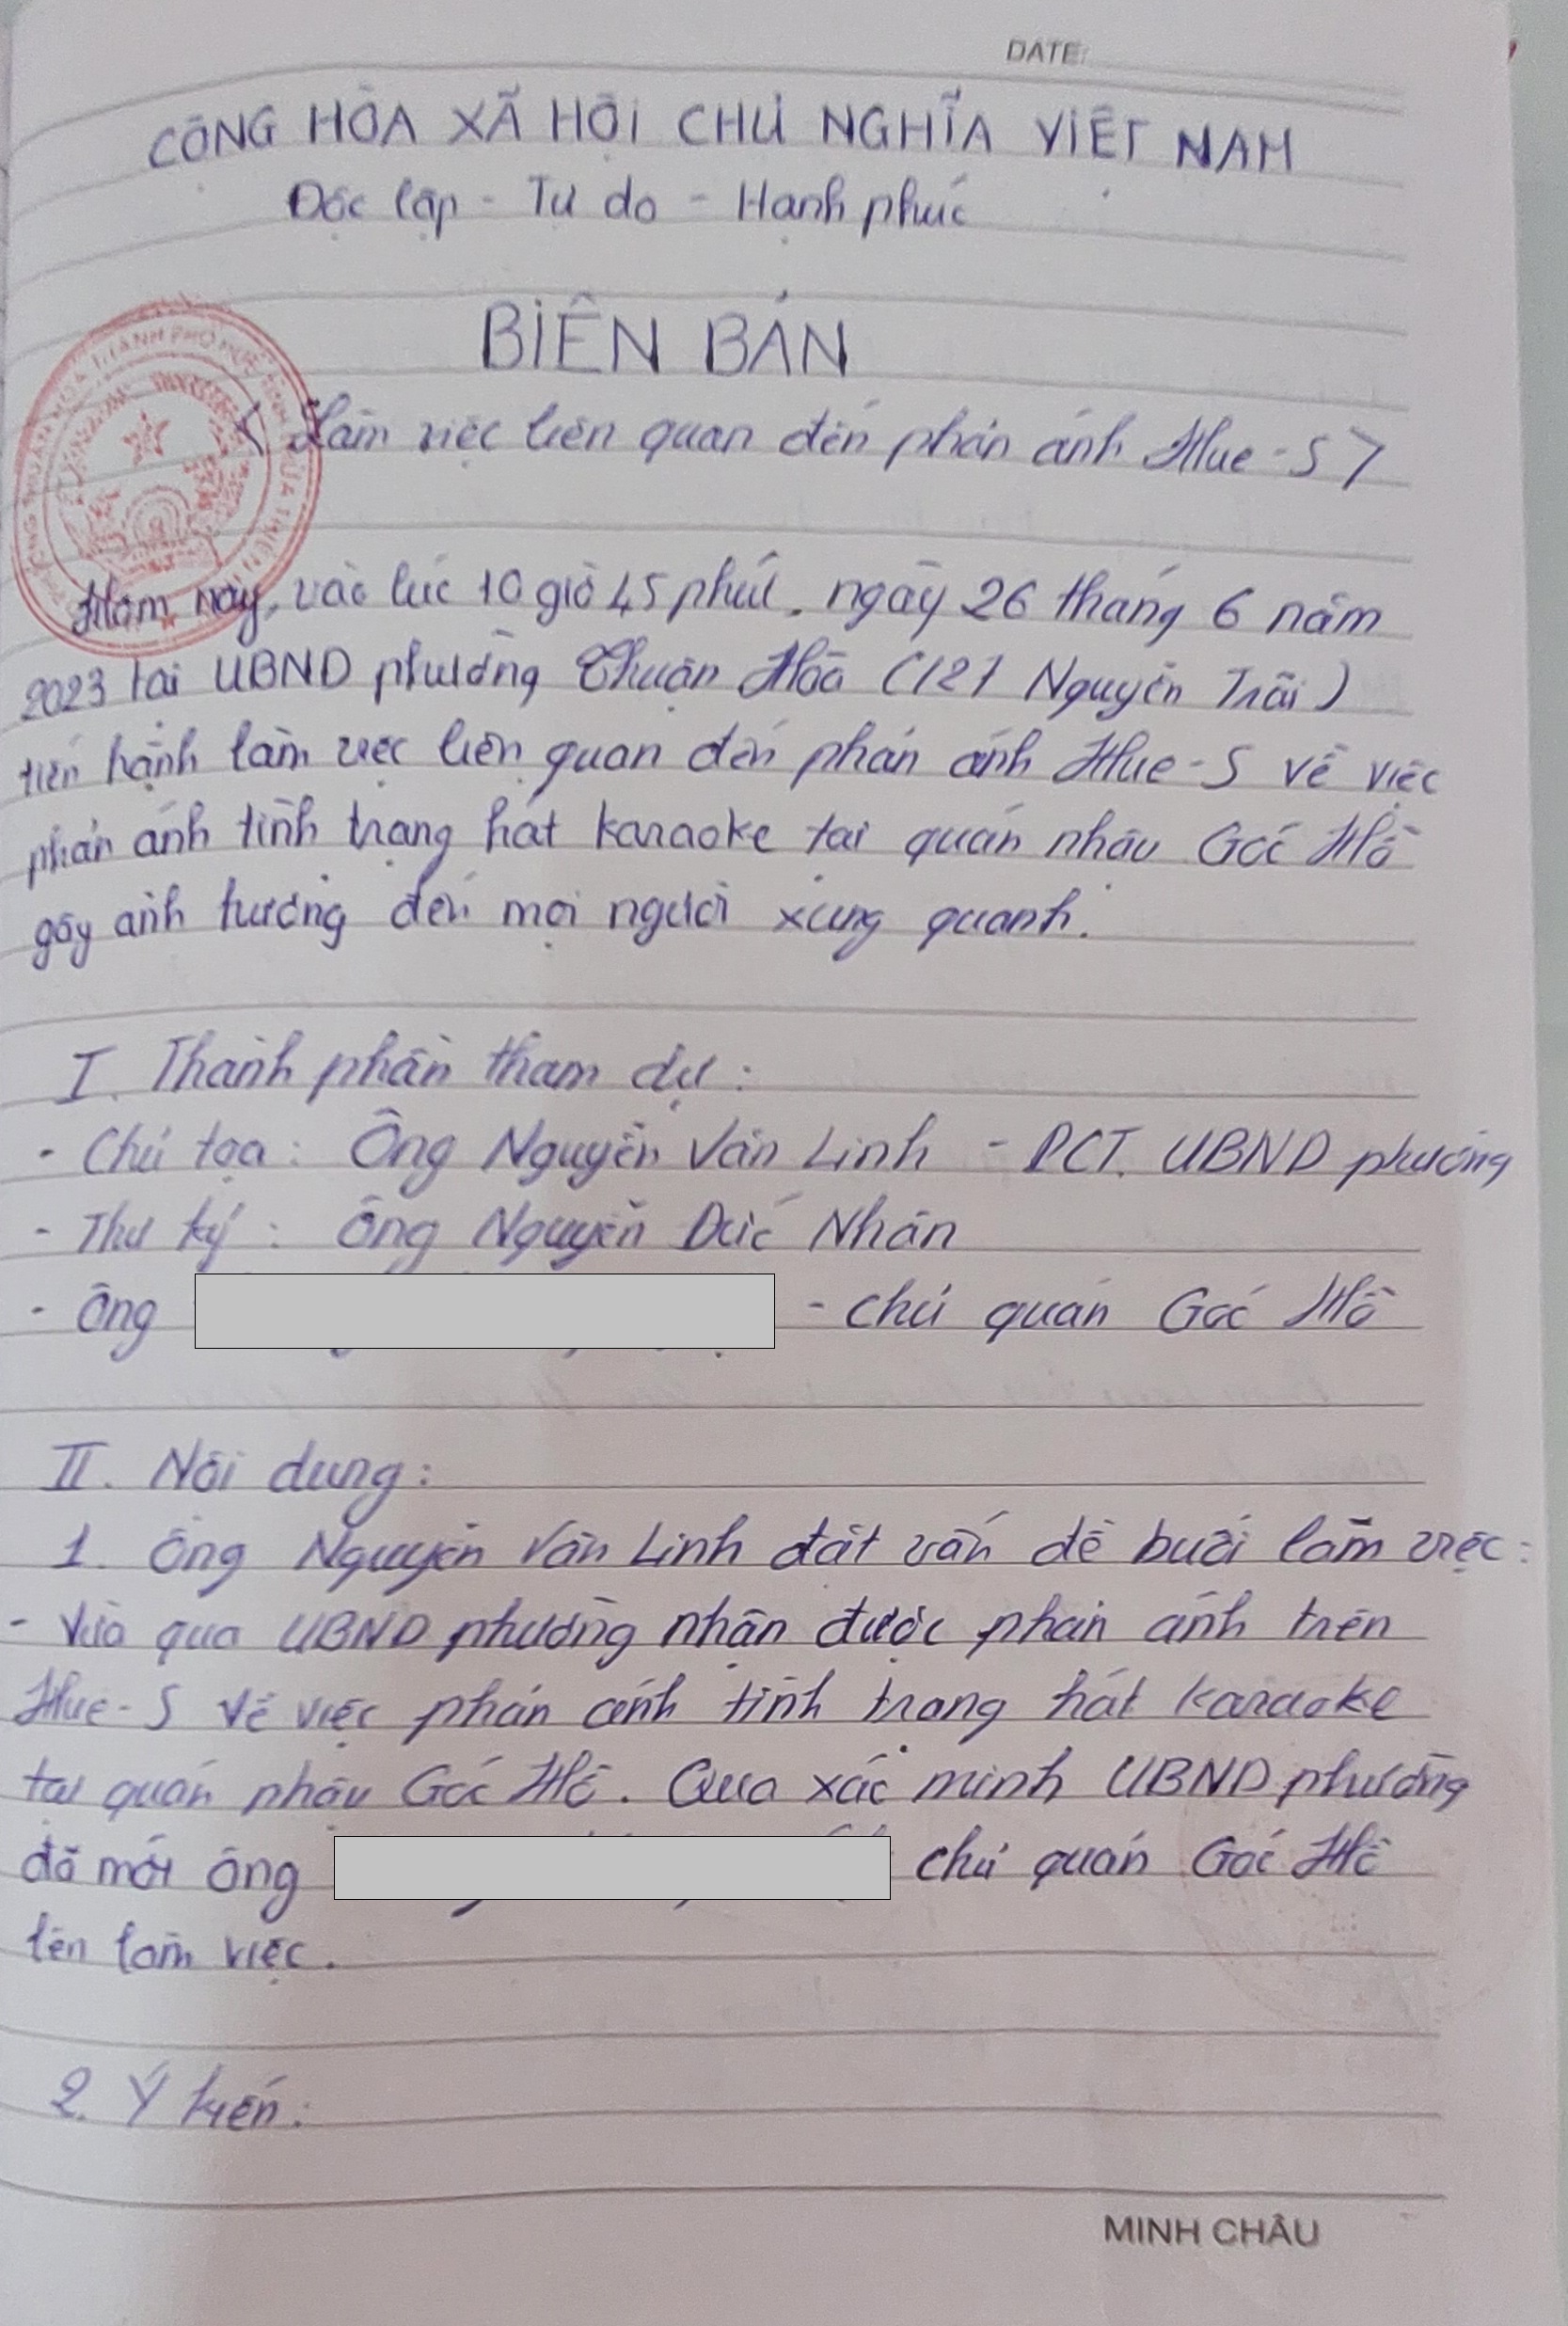 DATE:
CỘNG HÒA XÃ HỘI CHỦ NGHĨA VIỆT NAM
Độc lập - Tự do - Hạnh phúc
BIÊN BẢN
< Làm việc liên quan đến phản ánh Hue-S >
Hôm nay, vào lúc 10 giờ 45 phút, ngày 26 tháng 6 năm
2023 tại UBND phường Thuận Hòa (121 Nguyễn Trãi)
tiến hành làm việc liên quan đến phản ánh Hue-S về việc
phản ánh tình trạng hát karaoke tại quán nhậu Góc Hồ
gây ảnh hưởng đến mọi người xung quanh.
I. Thành phần tham dự:
- Chủ tọa: Ông Nguyễn Văn Linh - PCT. UBND phường
- Thư ký: Ông Nguyễn Đức Nhân
- Ông - chủ quán Góc Hồ
II. Nội dung:
1. Ông Nguyễn Văn Linh đặt vấn đề buổi làm việc:
- Vừa qua UBND phường nhận được phản ánh trên
Hue-S về việc phản ánh tình trạng hát karaoke
tại quán nhậu Góc Hồ. Qua xác minh UBND phường
đã mời ông chủ quán Góc Hồ
lên làm việc.
2. Ý kiến:
MINH CHÂU